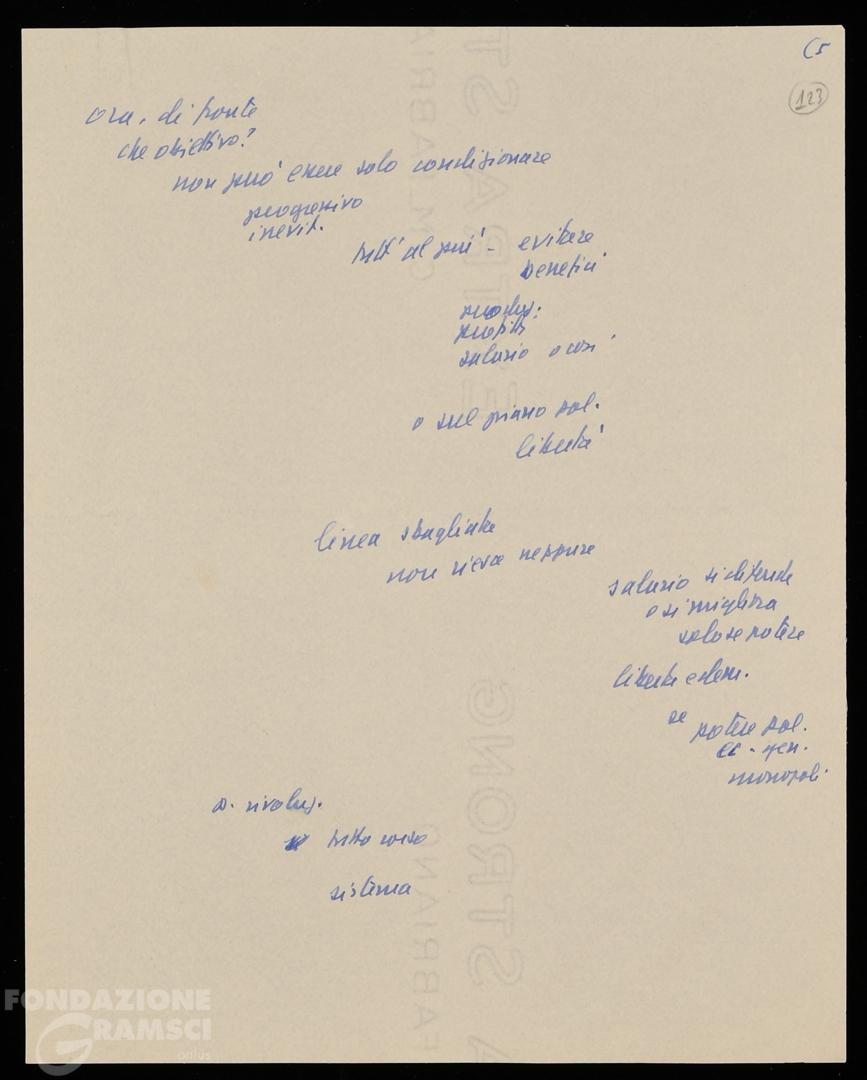 C5
123
ora, di fronte
che obiettivo?
non può essere solo condizionare
progressivo
inevit.
tutt' al più - evitare
benefici
produz.
profitti
salario o così
o sul piano pol.
libertà
linea sbagliata
non riesce neppure
salario si difende
o si migliora
solo se potere
libertà e dem.
se
potere pol.
ec. - gen.
monopoli
s. rivoluz.
tutto corso
sistema
FABRIANO
A STRONG
FONDAZIONE
GRAMSCI
onlus